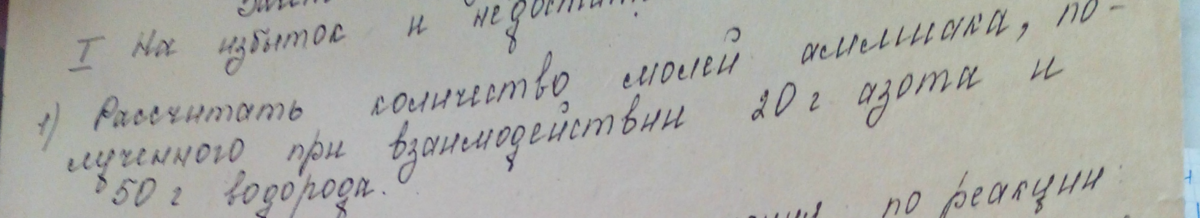 I На избыток и
1) Рассчитать количество молей аммиака, по-
лученного при взаимодействии 20 г азота и
50 г водорода.
по реакции